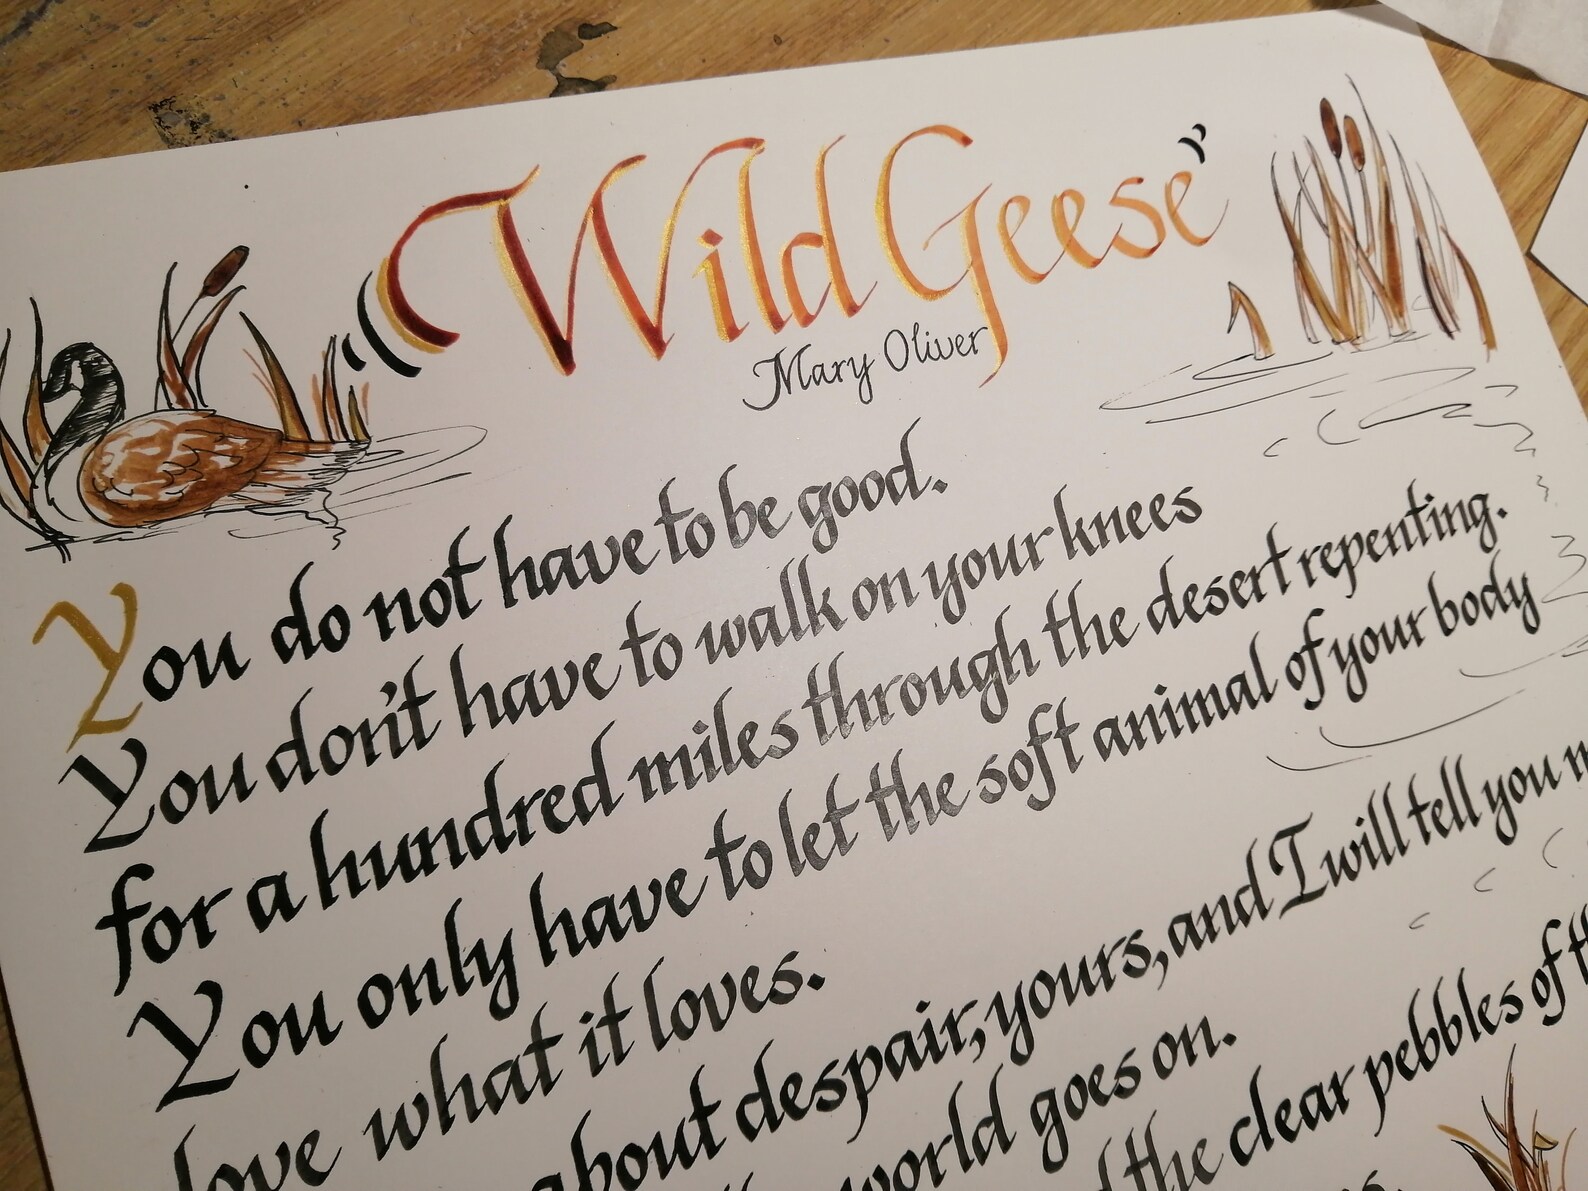 "Wild Geese"
Mary Oliver
You do not have to be good.
You don't have to walk on your knees
for a hundred miles through the desert repenting.
You only have to let the soft animal of your body
love what it loves.
about despair, yours, and I will tell you
world goes on.
the clear pebbles of